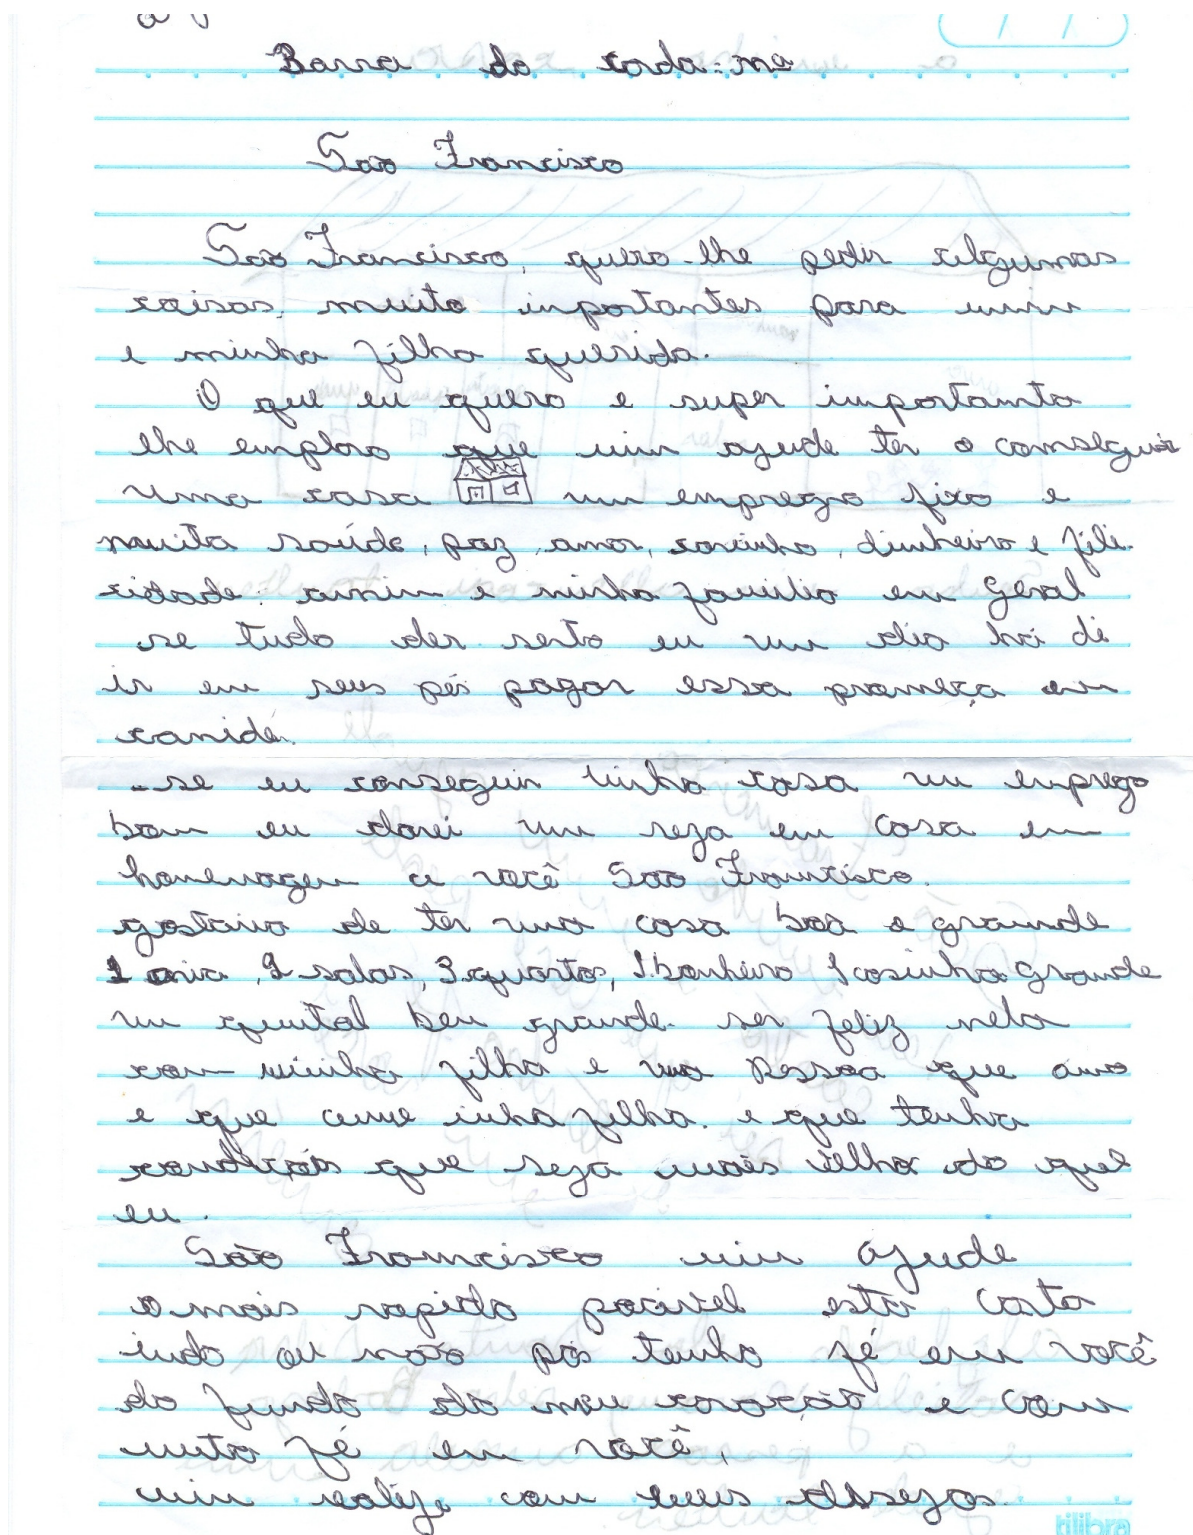 Barra do corda-ma
São Francisco
São Francisco, quero-lhe pedir algumas
coisas muito inportantes para mim
e minha filha querida.
O que eu quero e super importanto
lhe emploro que mim ajude ter o comseguir
uma casa um emprego fixo e
muita saúde, paz, amor, carinho, dinheiro e fili-
cidade. amim e minha familia em Geral
se tudo der serto eu um dia hei di
ir em seus pés pagar essa promeça em
canidé.
-se eu conseguir minha casa um emprego
bom eu darei um reza em casa em
homenagem a você São Francisco.
gostaria de ter uma casa boa e grande
1 aria, 2 salas, 3 quartos, 1 banheiro 1 cosinha grande
um quintal bem grande. ser feliz nela
com minha filha e uma pessoa que amo
e que ame inha filha. e que tenha
condições que seja mais velho do que
eu.
São Francisco mim ajude
o mais rapido pocivel esta carta
indo ou não pos tenho fé em você
do fundo do meu coração e com
muta fé em você,
mim realize com meus desejos.
tilibra